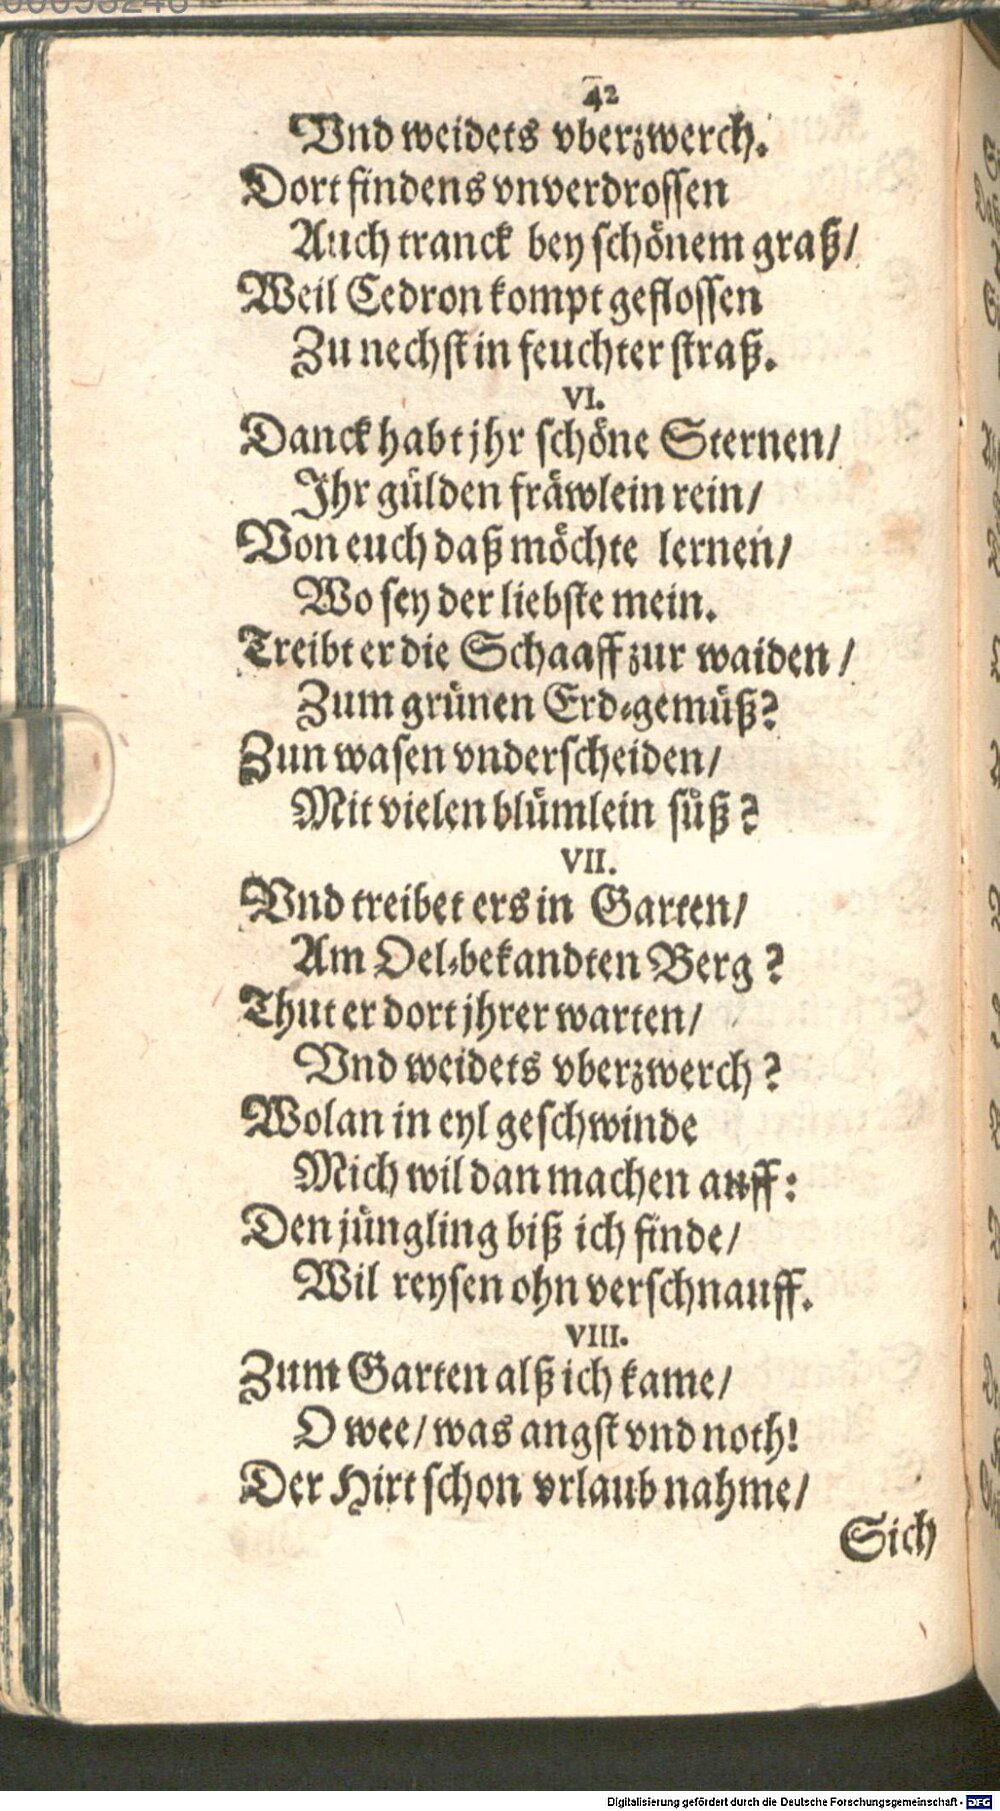 42
Vnd weidets vberzwerch.
Dort findens vnverdrossen
Auch tranck bey schönem graß/
Weil Cedron kompt geflossen
Zu nechst in feuchter straß.
VI.
Danck habt jhr schöne Sternen/
Ihr gülden fräwlein rein/
Von euch daß möchte lernen/
Wo sey der liebste mein.
Treibt er die Schaaff zur waiden/
Zum grünen Erd-gemüß?
Zun wasen vnderscheiden/
Mit vielen blümlein süß?
VII.
Vnd treibet ers in Garten/
Am Oel-bekandten Berg?
Thut er dort jhrer warten/
Vnd weidets vberzwerch?
Wolan in eyl geschwinde
Mich wil dan machen auff:
Den jüngling biß ich finde/
Wil reysen ohn verschnauff.
VIII.
Zum Garten alß ich kame/
O wee/ was angst vnd noth!
Der Hirt schon vrlaub nahme/
Sich
Digitalisierung gefördert durch die Deutsche Forschungsgemeinschaft - DFG